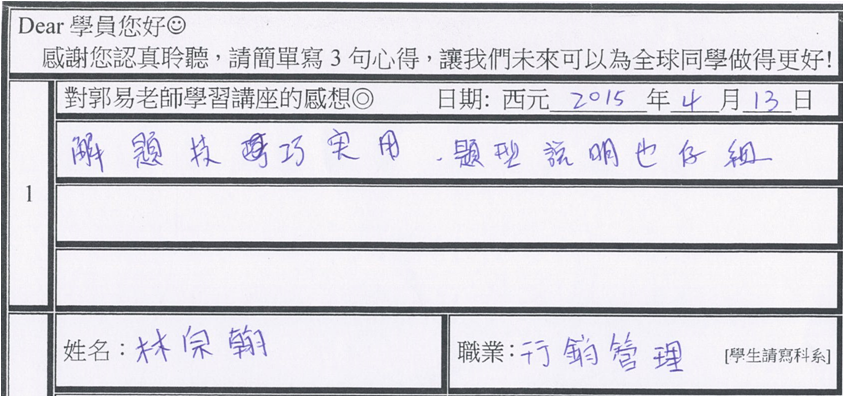 Dear 學員您好☺
感謝您認真聆聽，請簡單寫 3 句心得，讓我們未來可以為全球同學做得更好!
對郭易老師學習講座的感想◎ 日期: 西元 2015 年 4 月 13 日
解題技巧实用、題型說明也仔細
1
姓名：林宗翰 職業：行銷管理 [學生請寫科系]